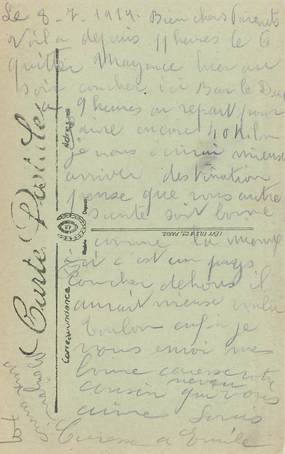 Le 8-7-1919. Bien chers Parents
Voila depuis 11 heures le 6
quitter Mayence
soir coucher ici Bar le Duc
9 heures on repart pour
faire encore 40 Klm
je vous écrirai mieux
arriver destination
pense que vous autre
santé soit bonne
comme la mienne
car c'est un pays
coucher dehors il
aurait mieux valu
Toulon enfin je
vous envoi mes
bonne caresse votre
cousin neveu qui vous
aime Louis
Caresse a Emile
Carte Postale
Correspondance
Adresse